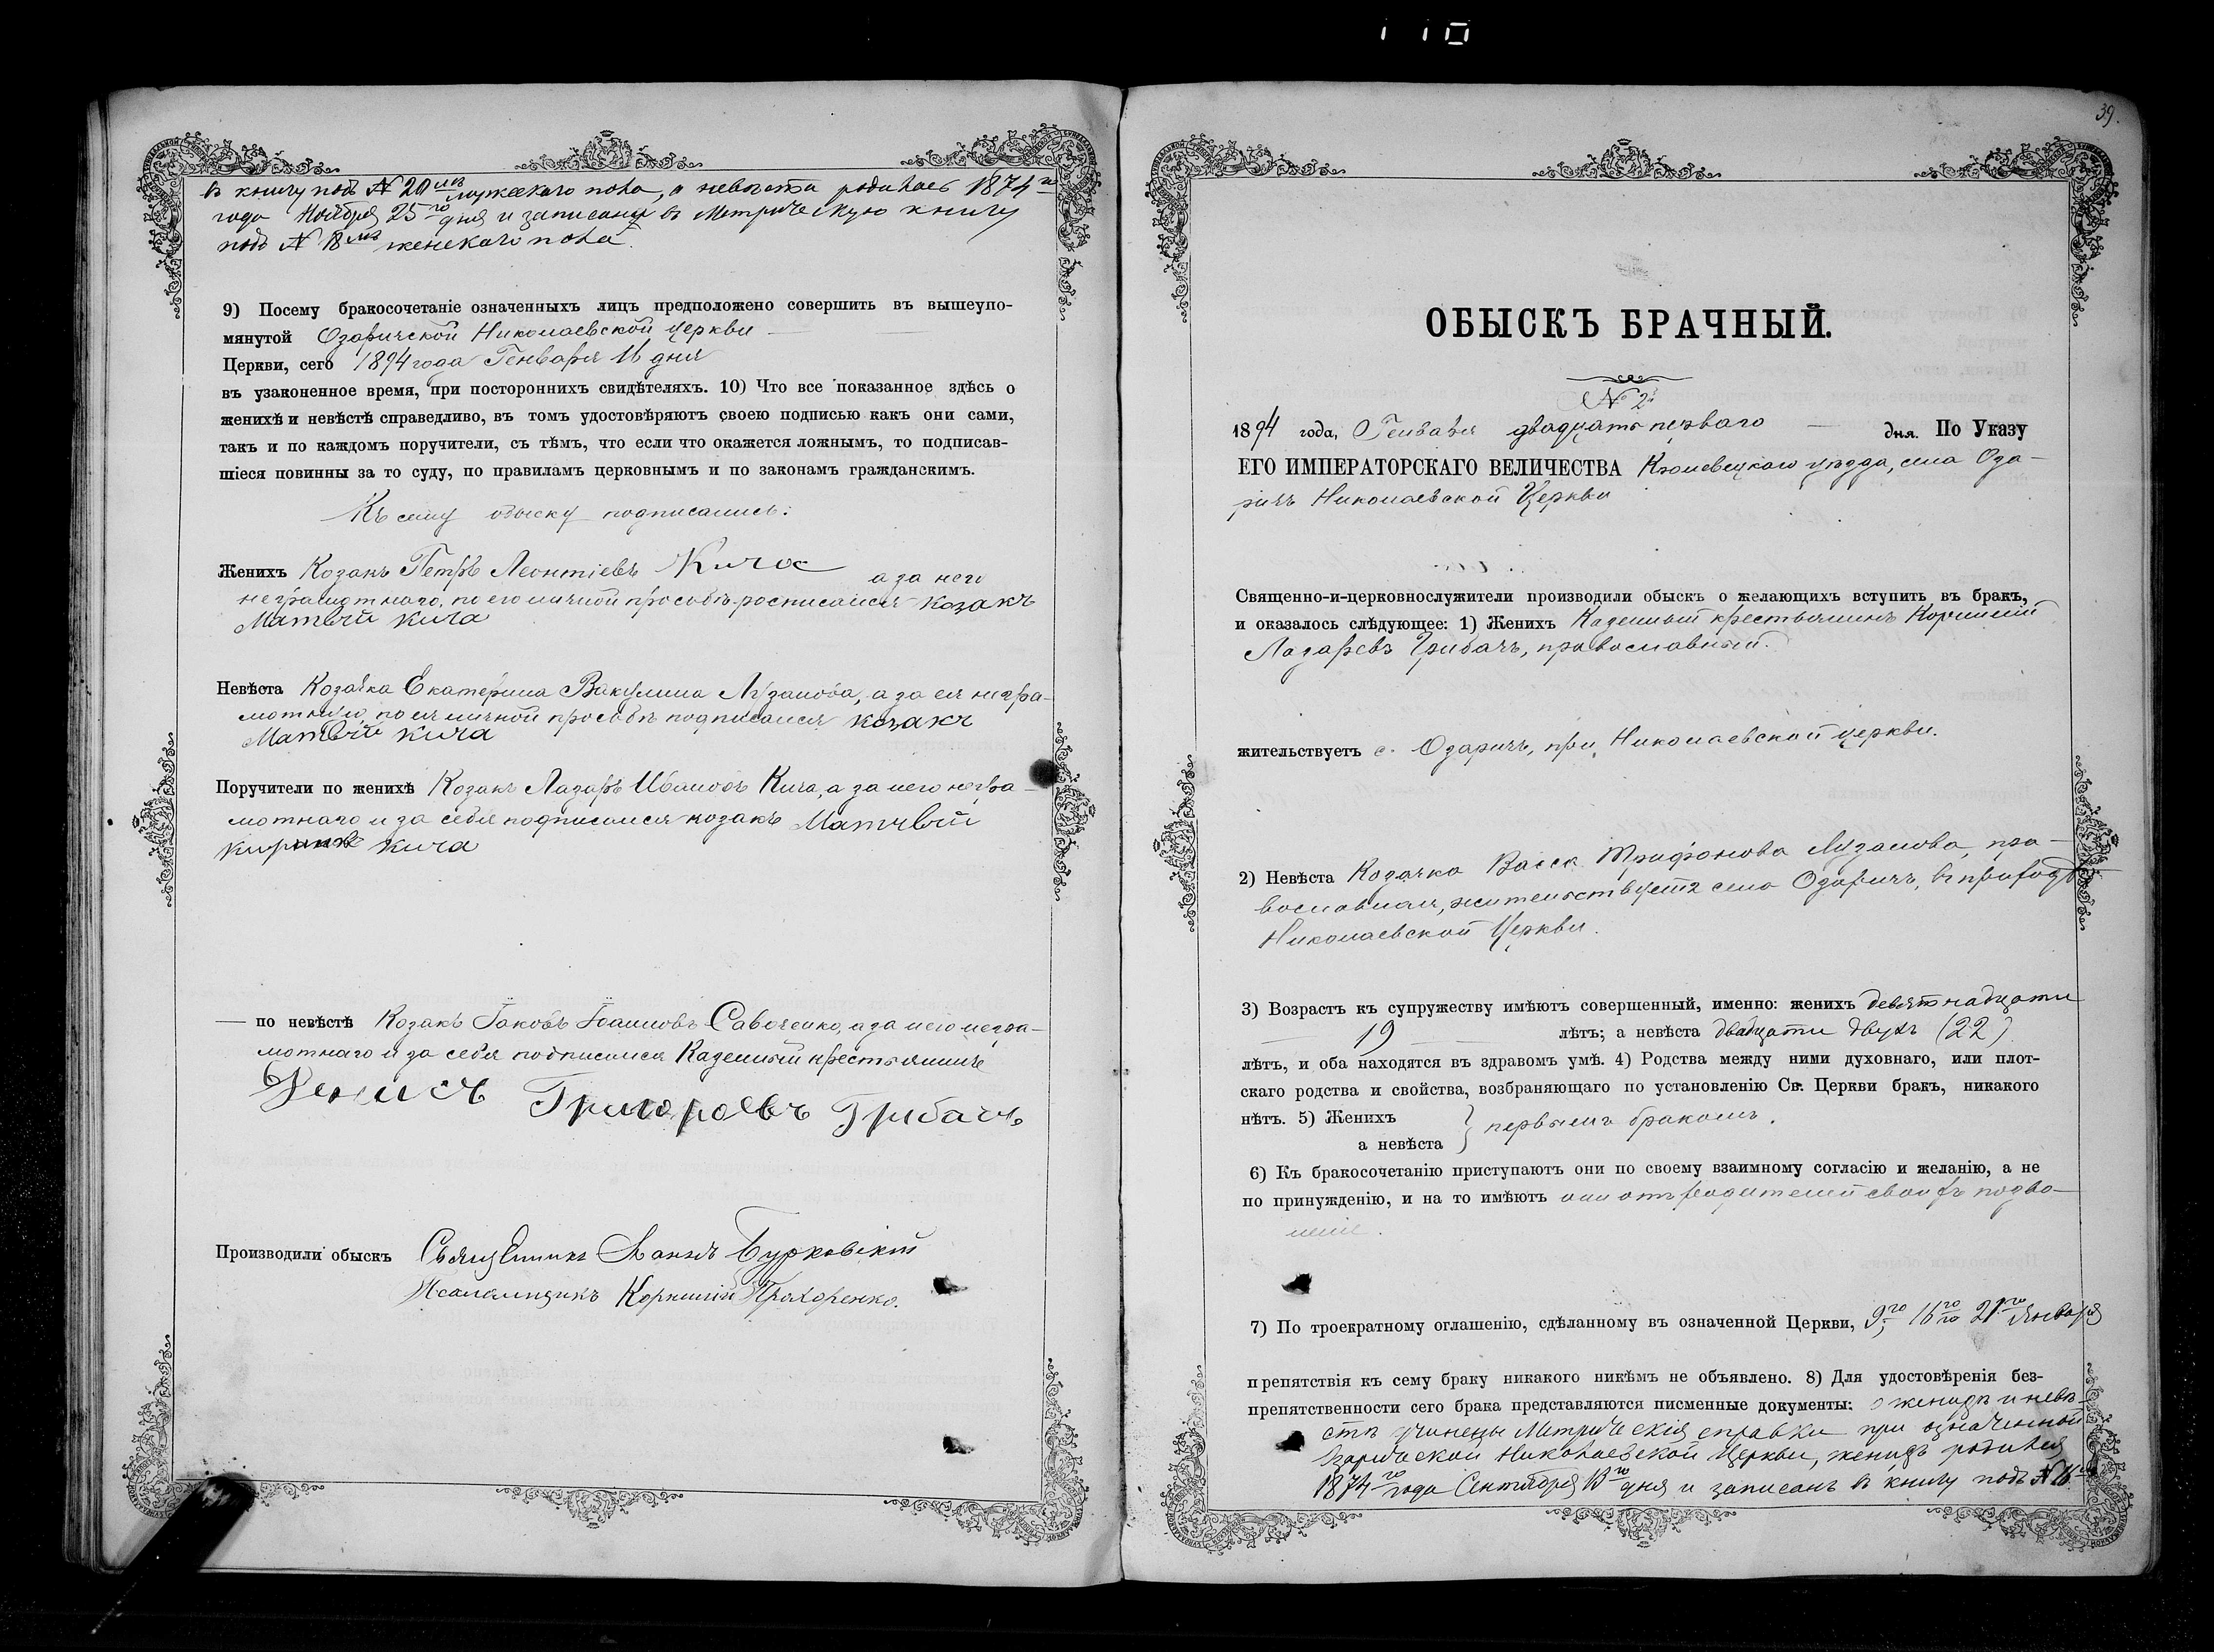 110
въ книгу подъ № 20мъ мужескаго пола, а невѣста родилась 1874го
года Ноября 25го дня и записана въ Метрическую книгу
подъ № 18мъ женскаго пола.
9) Посему бракосочетаніе означенныхъ лицъ предположено совершить въ вышеупо-
мянутой Озаричской Николаевской церкви
Церкви, сего 1894 года Генваря 16 дня
въ узаконенное время, при постороннихъ свидѣтеляхъ. 10) Что все показанное здѣсь о
женихѣ и невѣстѣ справедливо, въ томъ удостовѣряютъ своею подписью какъ они сами,
такъ и по каждомъ поручители, съ тѣмъ, что если что окажется ложнымъ, то подписав-
шіеся повинны за то суду, по правиламъ церковнымъ и по законамъ гражданскимъ.
Къ сему обыску подписались:
Женихъ Козакъ Петръ Леонтіевъ Кича а за него
неграмотнаго, по его личной прозьбѣ росписался козакъ
Матвѣй Кича
Невѣста Козачка Екатерина Вакулина Лузанова, а за ея негра-
мотную, по ея личной прозьбѣ подписался козакъ
Матвѣй Кича
Поручители по женихѣ Козакъ Лазаръ Ивановъ Кича, а за него негра-
мотнаго и за себя подписался козакъ Матвѣй
Кича
— по невѣстѣ Козакъ Іаковъ Іоанновъ Савченко, а за него негра-
мотнаго и за себя подписался Казенный крестьянинъ
Денисъ Григоровъ Грибачъ
Производили обыскъ Священникъ Іоаннъ Бурковскій
Псаломщикъ Корнилій Прохоренко.
39.
ОБЫСКЪ БРАЧНЫЙ.
№ 2й
1894 года, Генваря двадцать перваго — дня. По Указу
ЕГО ИМПЕРАТОРСКАГО ВЕЛИЧЕСТВА Кролевецкаго уѣзда, села Оза-
ричъ Николаевской Церкви
Священно-и-церковнослужители производили обыскъ о желающихъ вступить въ бракъ,
и оказалось слѣдующее: 1) Женихъ Казенный крестьянинъ Корнилій
Лазаревъ Грибачъ, православный.
жительствуетъ с. Озаричъ, при Николаевской церкви.
2) Невѣста Козачка Васса Трифонова Лузанова, пра-
вославная, жительствуетъ село Озаричъ, въ приходѣ
Николаевской Церкви.
3) Возрастъ къ супружеству имѣютъ совершенный, именно: женихъ девятнадцати
19 лѣтъ; а невѣста двадцати двухъ (22)
лѣтъ, и оба находятся въ здравомъ умѣ. 4) Родства между ними духовнаго, или плот-
скаго родства и свойства, возбраняющаго по установленію Св. Церкви бракъ, никакого
нѣтъ. 5) Женихъ
а невѣста } первымъ бракомъ.
6) Къ бракосочетанію приступаютъ они по своему взаимному согласію и желанію, а не
по принужденію, и на то имѣютъ они отъ родителей своихъ позво-
леніе.
7) По троекратному оглашенію, сдѣланному въ означенной Церкви, 9го, 16го 21го Января
препятствія къ сему браку никакого никѣмъ не объявлено. 8) Для удостовѣренія без-
препятственности сего брака представляются писменные документы: о женихѣ и невѣ-
стѣ учинены Метрическія справки при означенной
Озаричской Николаевской Церкви, женихъ родился
1874го года Сентября 13го дня и записанъ въ книгу подъ №